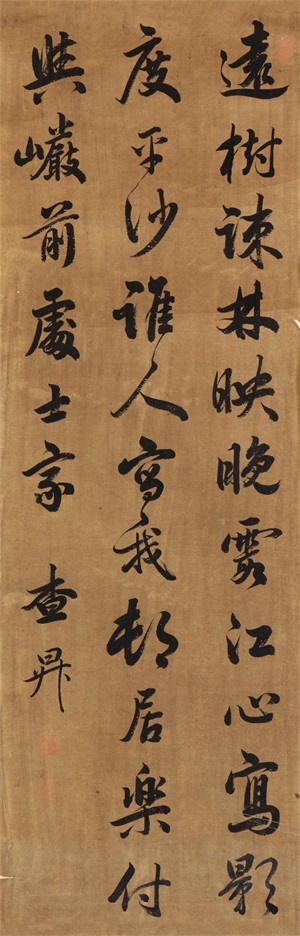 遠樹踈林映晚霞江心寫影
度平沙誰人寫我邨居樂付
與巗前處士家 查昇